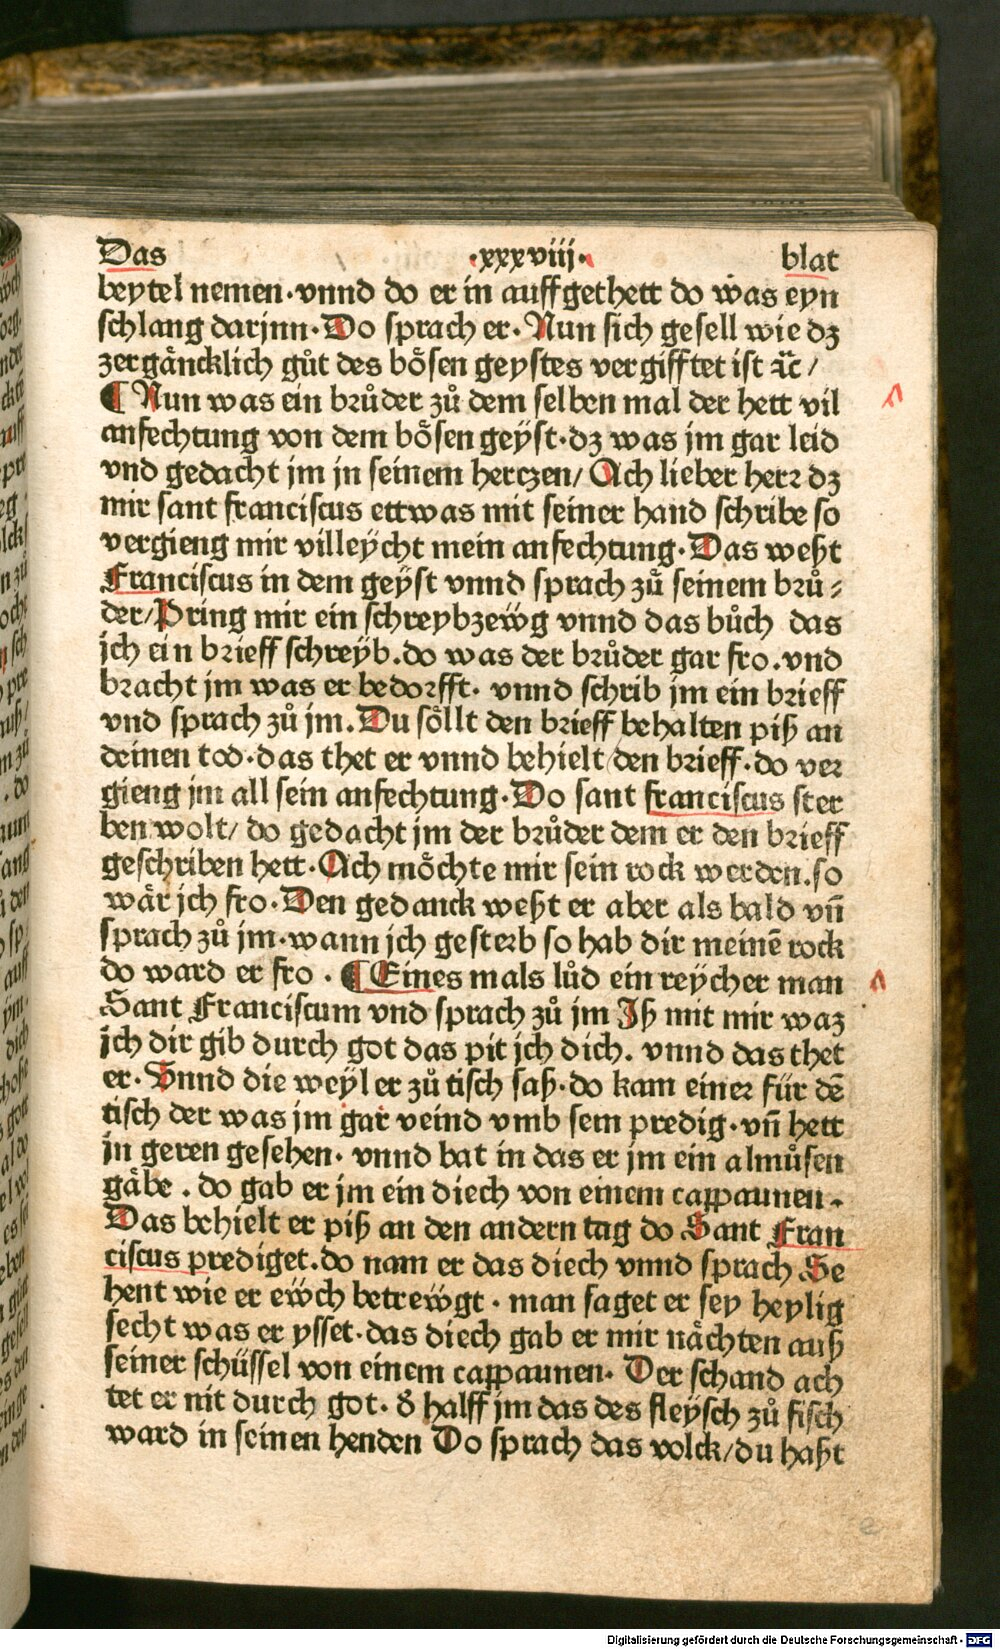 Das ·xxxviii· blat
beytel nemen·vnnd do er in auffgethett do was eyn
schlang darjnn·Do sprach er·Nun sich gesell wie dz
zergäncklich gůt des bösen geystes vergifftet ist ꝛc̈/
¶ Nun was ein brůder zů dem selben mal der hett vil
anfechtung von dem bösen geÿst·dz was jm gar leid
vnd gedacht jm in seinem hertzen/ Ach lieber herr dz
mir sant franciscus ettwas mit seiner hand schribe so
vergieng mir villeÿcht mein anfechtung·Das weßt
Franciscus in dem geÿst vnnd sprach zů seinem brů⸗
der/Pring mir ein schreybzeẅg vnnd das bůch das
jch ein brieff schreÿb.do was der brůder gar fro.vnd
bracht jm was er bedorfft· vnnd schrib jm ein brieff
vnd sprach zů jm.Du söllt den brieff behalten piß an
deinen tod·das thet er vnnd behielt den brieff·do ver
gieng jm all sein anfechtung·Do sant franciscus ster
ben wolt/ do gedacht jm der brůder dem er den brieff
geschriben hett·Ach möchte mir sein rock werden.so
wär jch fro·Den gedanck weßt er aber als bald vn̄
sprach zů jm·wann jch gesterb so hab dir meinē rock
do ward er fro · ¶ Eines mals lůd ein reÿcher man
Sant Franciscum vnd sprach zů jm Iß mit mir waz
jch dir gib durch got das pit jch dich. vnnd das thet
er·Vnnd die weÿl er zů tisch saß·do kam einer für dē
tisch der was jm gar veind vmb sein predig·vn̄ hett
jn geren gesehen· vnnd bat in das er jm ein almůsen
gäbe . do gab er jm ein diech von einem cappaunen·
Das behielt er piß an den andern tag do Sant Fran
ciscus prediget.do nam er das diech vnnd sprach Se
hent wie er eẅch betreẅgt · man saget er sey heylig
secht was er ysset·das diech gab er mir nächten auß
seiner schüssel von einem cappaunen· Der schand ach
tet er nit durch got· d̕ halff jm das des fleÿsch zů fisch
ward in seinen henden Do sprach das volck/du haßt
Digitalisierung gefördert durch die Deutsche Forschungsgemeinschaft - DFG